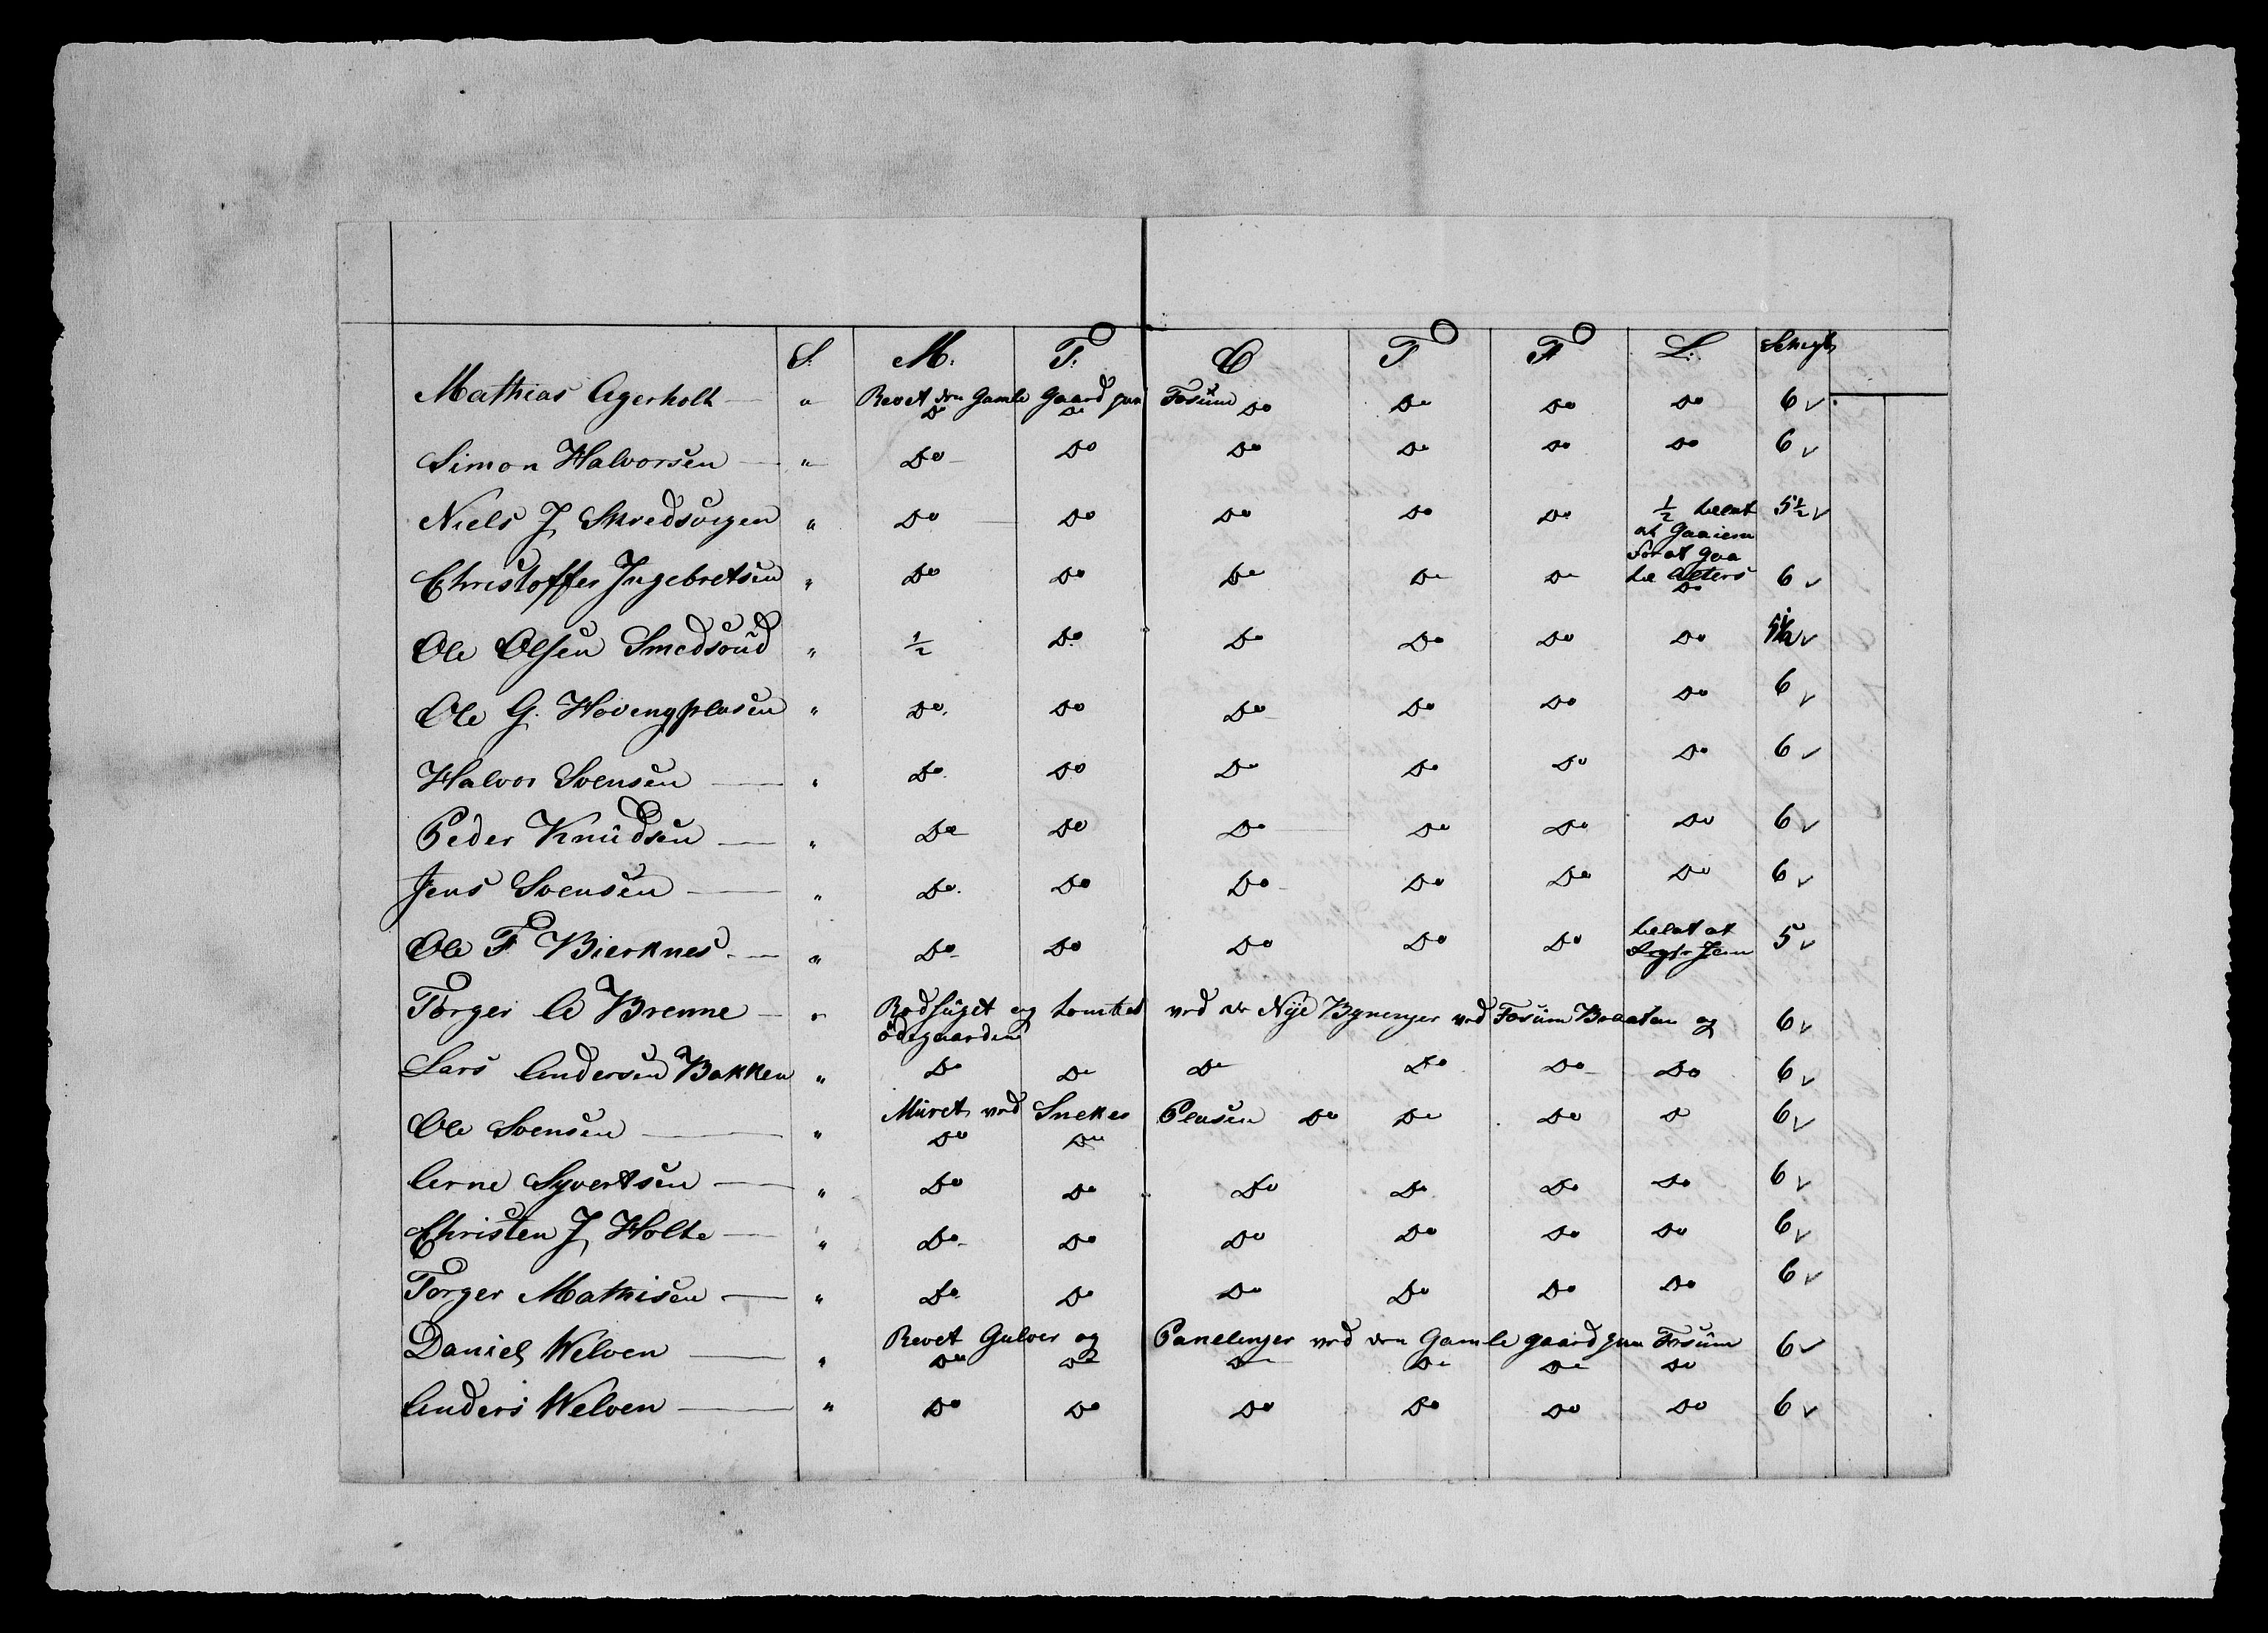 S. M. T. O T F L. Schigt
Mathias Agerholt — " Revet den Gamle Gaard paa Fosüm Do Do Do Do 6 v
Do Do
Simon Halvorsen — " Do Do Do Do Do Do 6 v
Niels J Skredsvigen " Do Do Do Do Do ½ 5½ v
at Gaa
for at Gaa
Christoffer Ingebretsen " Do Do Do Do Do 6 v
Do
Ole Olsen Smedsoud " ½ Do Do Do Do Do 5½ v
Ole G. Hovengplasen " Do Do Do Do Do Do 6 v
Halvor Svensen — " Do Do Do Do Do Do 6 v
Peder Knüdsen — " Do Do Do Do Do Do 6 v
Jens Svensen — " Do Do Do Do Do Do 6 v
Ole F Bierknes — " Do Do Do Do Do 5 v
Torger A Brenne — " Rodhüget og tomtet ved de Nÿe Bÿnenger ved Fosüm Braaten og 6 v
ödegaarden
Lars Andersen Bakken " Do Do Do Do Do Do 6 v
Ole Svensen — " Müret ved Snekes Plasen Do Do Do Do 6 v
Do Do
Arne Syvertsen — " Do Do Do Do Do Do 6 v
Christen J Holte — " Do Do Do Do Do Do 6 v
Torger Mathisen — " Do Do Do Do Do Do 6 v
Daniel Welven — " Revet Gulver og Panelinger ved den Gamle gaard paa Fosüm 6 v
Do Do Do Do Do Do
Anders Welven — " Do Do Do Do Do Do 6 v